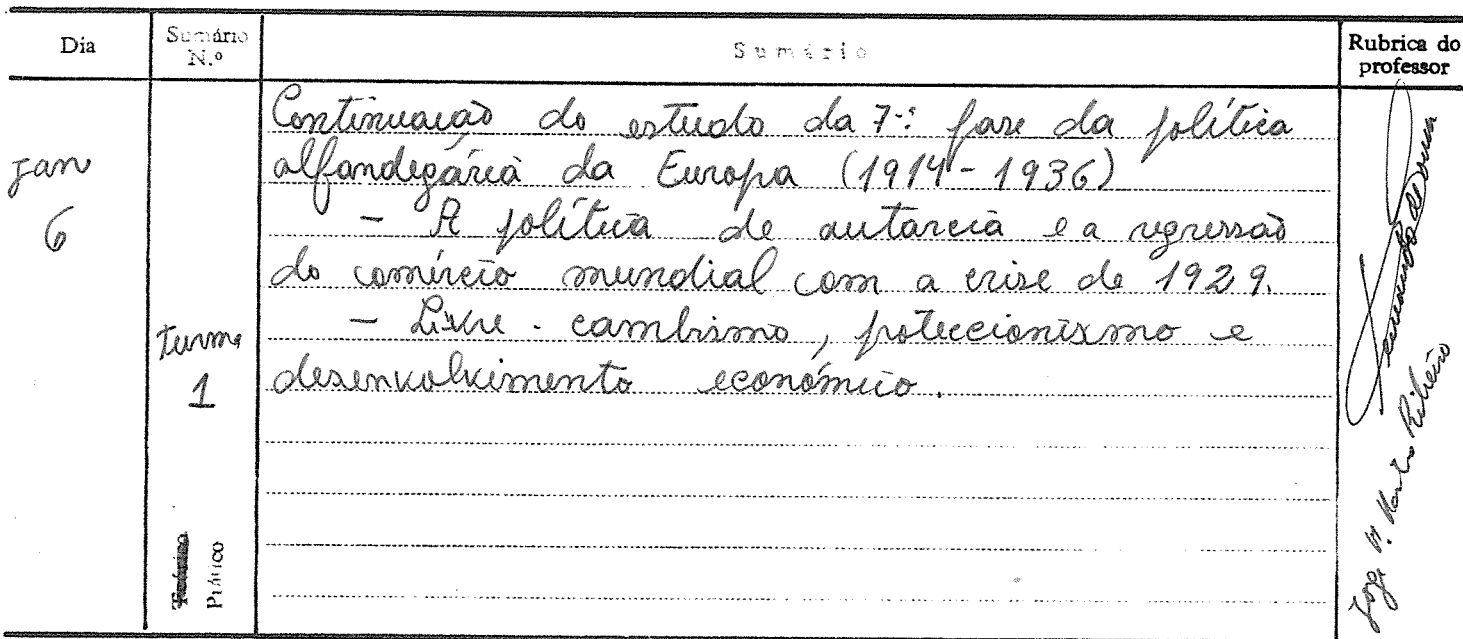 Dia
Sumário N.º
Sumário
Rubrica do professor
Jan
6
Turma
1
Teórico
Prático
Continuação do estudo da 7.ª fase da política
alfandegária da Europa (1914-1936)
- A política de autarcia e a regressão
do comércio mundial com a crise de 1929.
- Livre-cambismo, proteccionismo e
desenvolvimento económico.
Fernando de Sousa
Ribeiro